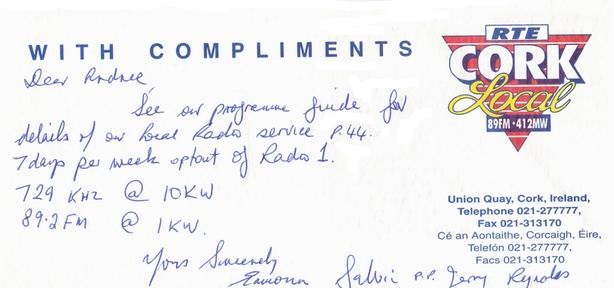 WITH COMPLIMENTS
RTE
CORK
Local
89FM·412MW
Dear
See our programme guide for
details of our local Radio service P.44.
7 days per week optout of Radio 1.
729 KHz @ 10KW
89.2 FM @ 1KW.
Yours Sincerely
P.P. Terry Reynolds
Union Quay, Cork, Ireland,
Telephone 021-277777,
Fax 021-313170
Cé an Aontaithe, Corcaigh, Éire,
Telefón 021-277777,
Facs 021-313170